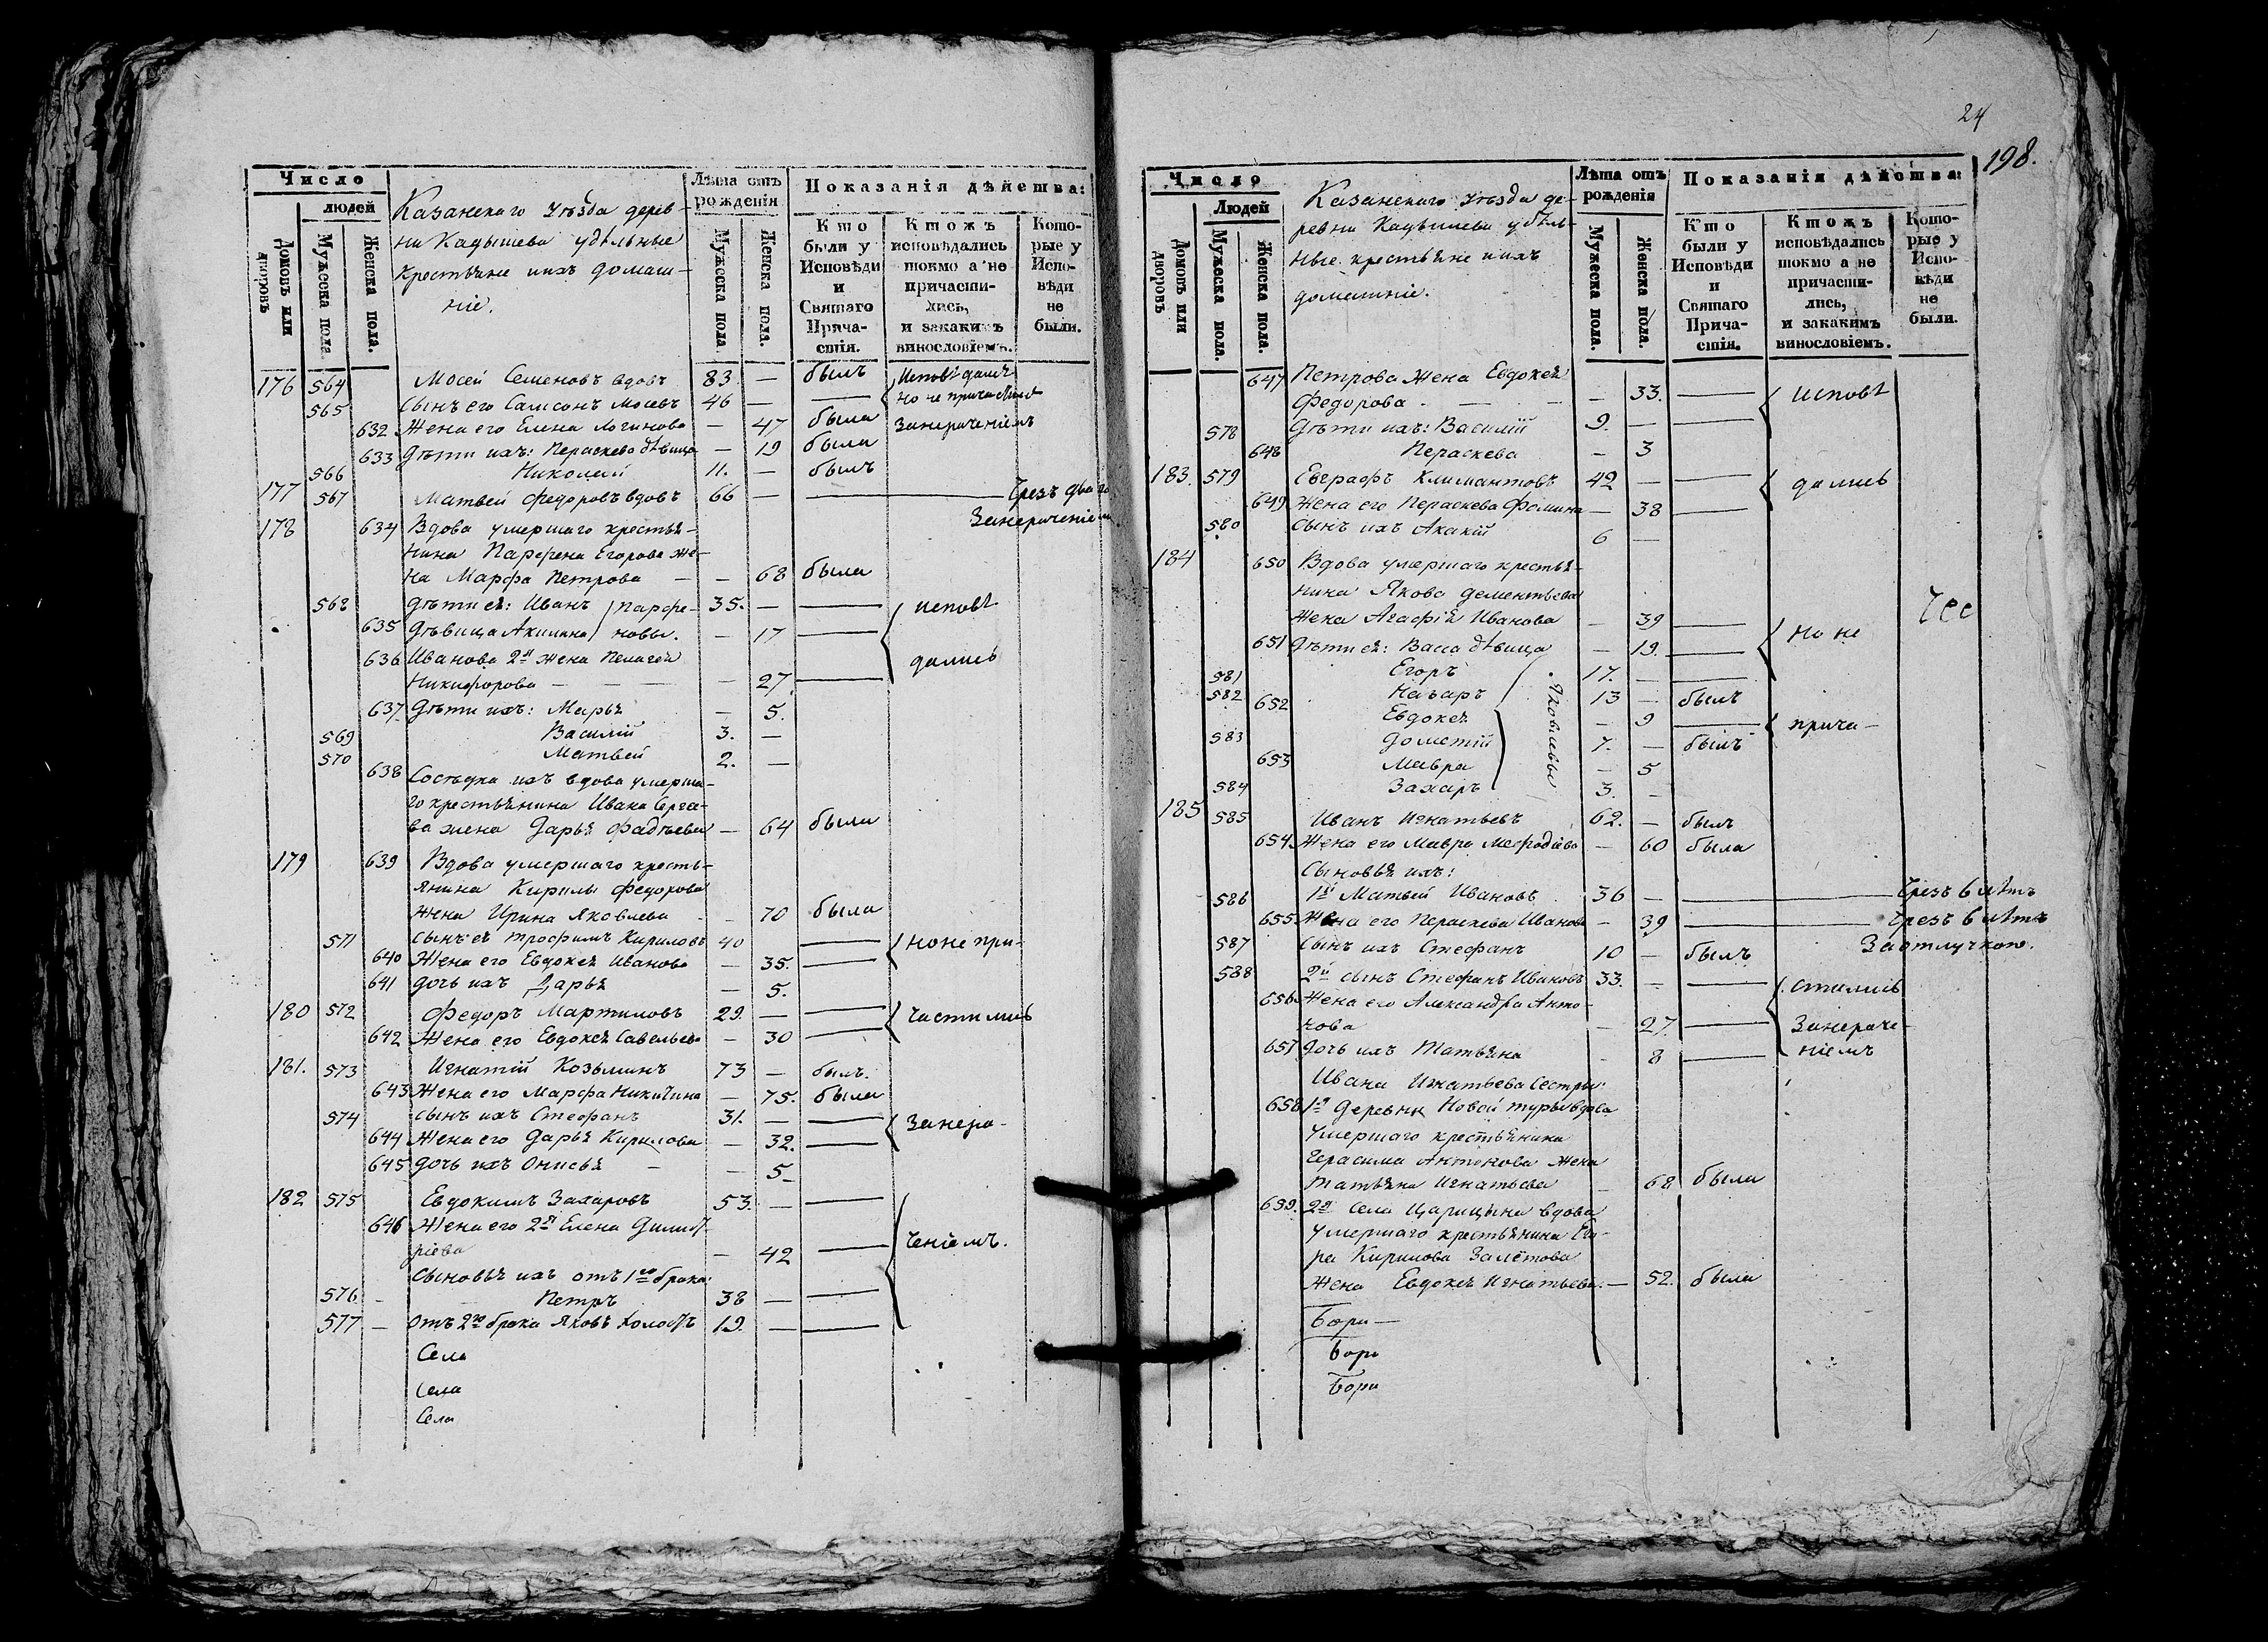 Число
людей
Домовъ или дворовъ
Мужеска пола
Женска пола.
Казанскаго уѣзда дерев-
ни Кадышева удѣльные
крестьяне и ихъ домаш-
ніе.
Лѣта отъ рожденія
Мужеска пола
Женска пола.
Показанія дѣйства:
Кто были у Исповѣди и Святаго Причастія.
Ктожъ исповѣдались токмо а не причастились, и закакимъ винословіемъ.
Которые у Исповѣди не были.
176 564 Мосей Семеновъ вдовъ 83 — былъ
565 сынъ его Самсонъ Мосеевъ 46 — — Исповѣдался но не причастился
632 Жена его Елена Логинова — 47 была занераченіемъ
633 Дѣти ихъ: Параскева дѣвица — 19 была
566 Николай 11. — былъ
177 567 Матвей Федоровъ вдовъ 66 — — Чрезъ два го
занераченіем
178 634 Вдова умершаго крестья-
нина Парфена Егорова же-
на Марфа Петрова — — 68 была
568 Дѣти ея: Иванъ парфе- 35. — — исповѣ
635 Дѣвица Акилина новы. — 17 —
636 Иванова 2я жена Пелагея
Никифорова — 27 — дались
637 Дѣти ихъ: Марья — 5.
569 Василій 3. —
570 Матвей 2. —
638 Сосѣдка ихъ вдова умерша-
го крестьянина Ивана Серге-
ва жена Дарья Фадѣева — 64 была
179 639 Вдова умершаго кресть-
янина Кирилы Федорова
жена Ирина Яковлева — 70 была
571 сынъ ея Трофимъ Кириловъ 40 — но не при-
640 Жена его Евдокея Иванова — 35. —
641 дочь ихъ Дарья — 5.
180 572 Федоръ Мартиновъ 29. — — частились
642 Жена его Евдокея Савельева — 30 —
181. 573 Игнатій Козьминъ 73 — былъ.
643 Жена его Марфа Никитина — 75. была
574 сынъ ихъ Стефанъ 31. — — занера-
644 Жена его Дарья Кирилова — 32. —
645 дочь ихъ Онисья — — 5
182 575 Евдокимъ Захаровъ 53. — —
646 Жена его 2я Елена Димит-
ріева — 42 — ченіемъ.
Сыновья ихъ отъ 1го брака:
576 Петръ 38 — —
577 — отъ 2го брака Яковъ холостъ 19. — —
Села
Села
Села
24
198.
Число
Людей
Домовъ или дворовъ
Мужеска пола.
Женска пола.
Казанскаго уѣзда де-
ревни Кадышева удѣль-
ные крестьяне и ихъ
домашніе.
Лѣта отъ рожденія
Мужеска пола.
Женска пола.
Показанія дѣйства:
Кто были у Исповѣди и Святаго Причастія.
Ктожъ исповѣдались токмо а не причастились, и закакимъ винословіемъ.
Которые у Исповѣди не были.
647 Петрова Жена Евдокея
Федорова — 33. — исповѣ
578 Дѣти ихъ: Василій 9. — —
648 Параскева — 3
183. 579 Евграфъ Климантовъ 42 — — дались
649 Жена его Параскева Фомина — 38 —
580 сынъ ихъ Акакій 6 —
184 650 Вдова умершаго крестья-
нина Якова Дементьева
жена Агафія Иванова — 39 —
651 Дѣти ея: Васса дѣвица — 19. — но не
581 Егоръ 17. — —
582 Назаръ 13 — былъ
652 Евдокея — 9 — прича-
583 Дометій 7. — былъ
653 Мавра — 5
584 Захаръ 3. —
Яковлевы
185 585 Иванъ Игнатьевъ 62. — былъ
654 Жена его Мавра Мефодіева — 60 была
Сыновья ихъ:
586 1й Матвей Ивановъ 36 — — Чрезъ 6 лѣтъ
655 Жена его Параскева Иванова — 39 — Чрезъ 6 лѣтъ
587 сынъ ихъ Стефанъ 10 — былъ За отлучкою.
588 2й сынъ Стефанъ Ивановъ 33. — — стились
656 Жена его Александра Анто-
нова — 27 — занераче-
657 дочь ихъ Татьяна — 8 — ніемъ
Ивана Игнатьева сестры:
658 1я Деревни Новой туры вдова
умершаго крестьянина
Герасима Антонова жена
Татьяна Игнатьева — 68 была
659. 2я Села Царицына вдова
умершаго крестьянина Его-
ра Кирилова Залетова
жена Евдокея Игнатьева. — 52. была
Бори —
Бори
Бори